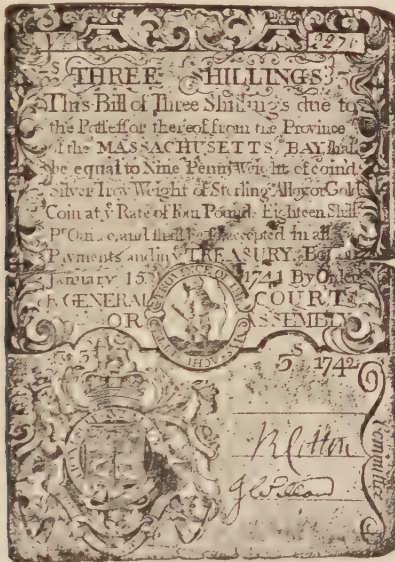 2271
S THREE SHILLINGS
This Bill of Three Shillings due to
the Possessor thereof from the Province
of the MASSACHUSETTS BAY shal
be equal to Nine PennyWeight of coind
Silver Troy Weight of Sterling Alloy or Gold
Coin at ye Rate of Four Pound Eighteen Shill
Pr Ounce, and shall be accepted in all
Payments and in ye TREASURY, Boston
January 15 1741 By Order
GENERAL COURT
OR ASSEMBLY
PROVINCE OF THE
S
3 1742
Committee